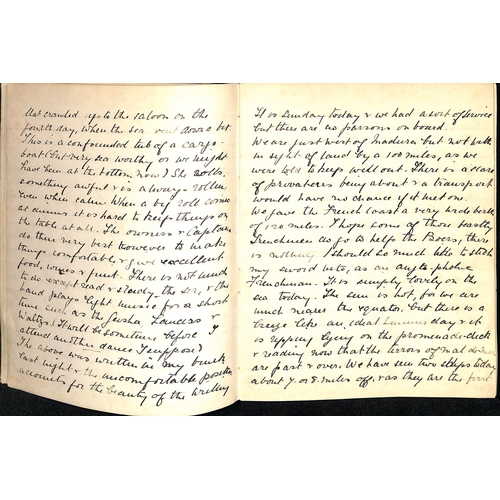 that crawled up to the saloon on the
fourth day, when the sea went down a bit.
This is a confounded tub of a cargo
boat (but very sea worthy or we might
have been at the bottom now) She rolls
something awful & is always rollin
even when calm. When a big roll comes
at dinner it is hard to keep things on
the table at all. The owners & Captain
do their very best however to make
things comfortable & give excellent
food, wines & fruit. There is not much
to do except read & study, the sea, & the
band plays light music for a short
time such as the Geisha, Lancers &
Waltzes (It will be sometime before I
attend another dance I suppose)
The above was written in my bunk
last night & the uncomfortable position
accounts for the beauty of the writing
It is Sunday today & we had a sort of service
but there are no parsons on board.
We are just west of Madeira but not with
in sight of land by a 100 miles, as we
were told to keep well out. There is a scare
of privateers being about & a transport
would have no chance if it met one.
We gave the French coast a very wide berth
of 120 miles. I hope some of those beastly
Frenchmen do go to help the Boers, there
is nothing I should so much like to stick
my sword into, as an anglo-phobe
Frenchman. It is simply lovely on the
sea today. The sun is hot, for we are
much nearer the equator, but there is a
breeze like an ideal summer day & it
is ripping lying on the promenade-deck
& reading now that the terrors of mal de mer
are past & over. We have seen two ships today
about 7 or 8 miles off, & as they are the first